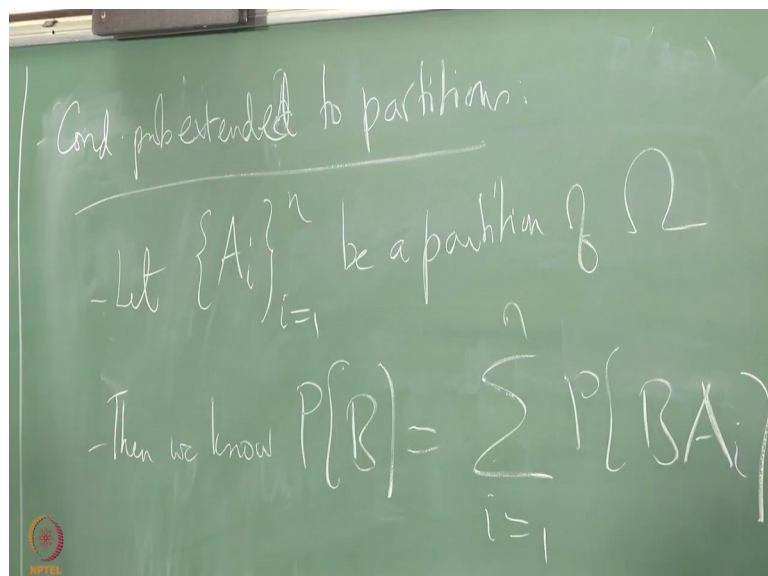 Cond. prob extended to partitions:
- Let {A_i}_{i=1}^{n} be a partition of Ω
- Then we know P[B] = \sum_{i=1}^{n} P[BA_i]
NPTEL